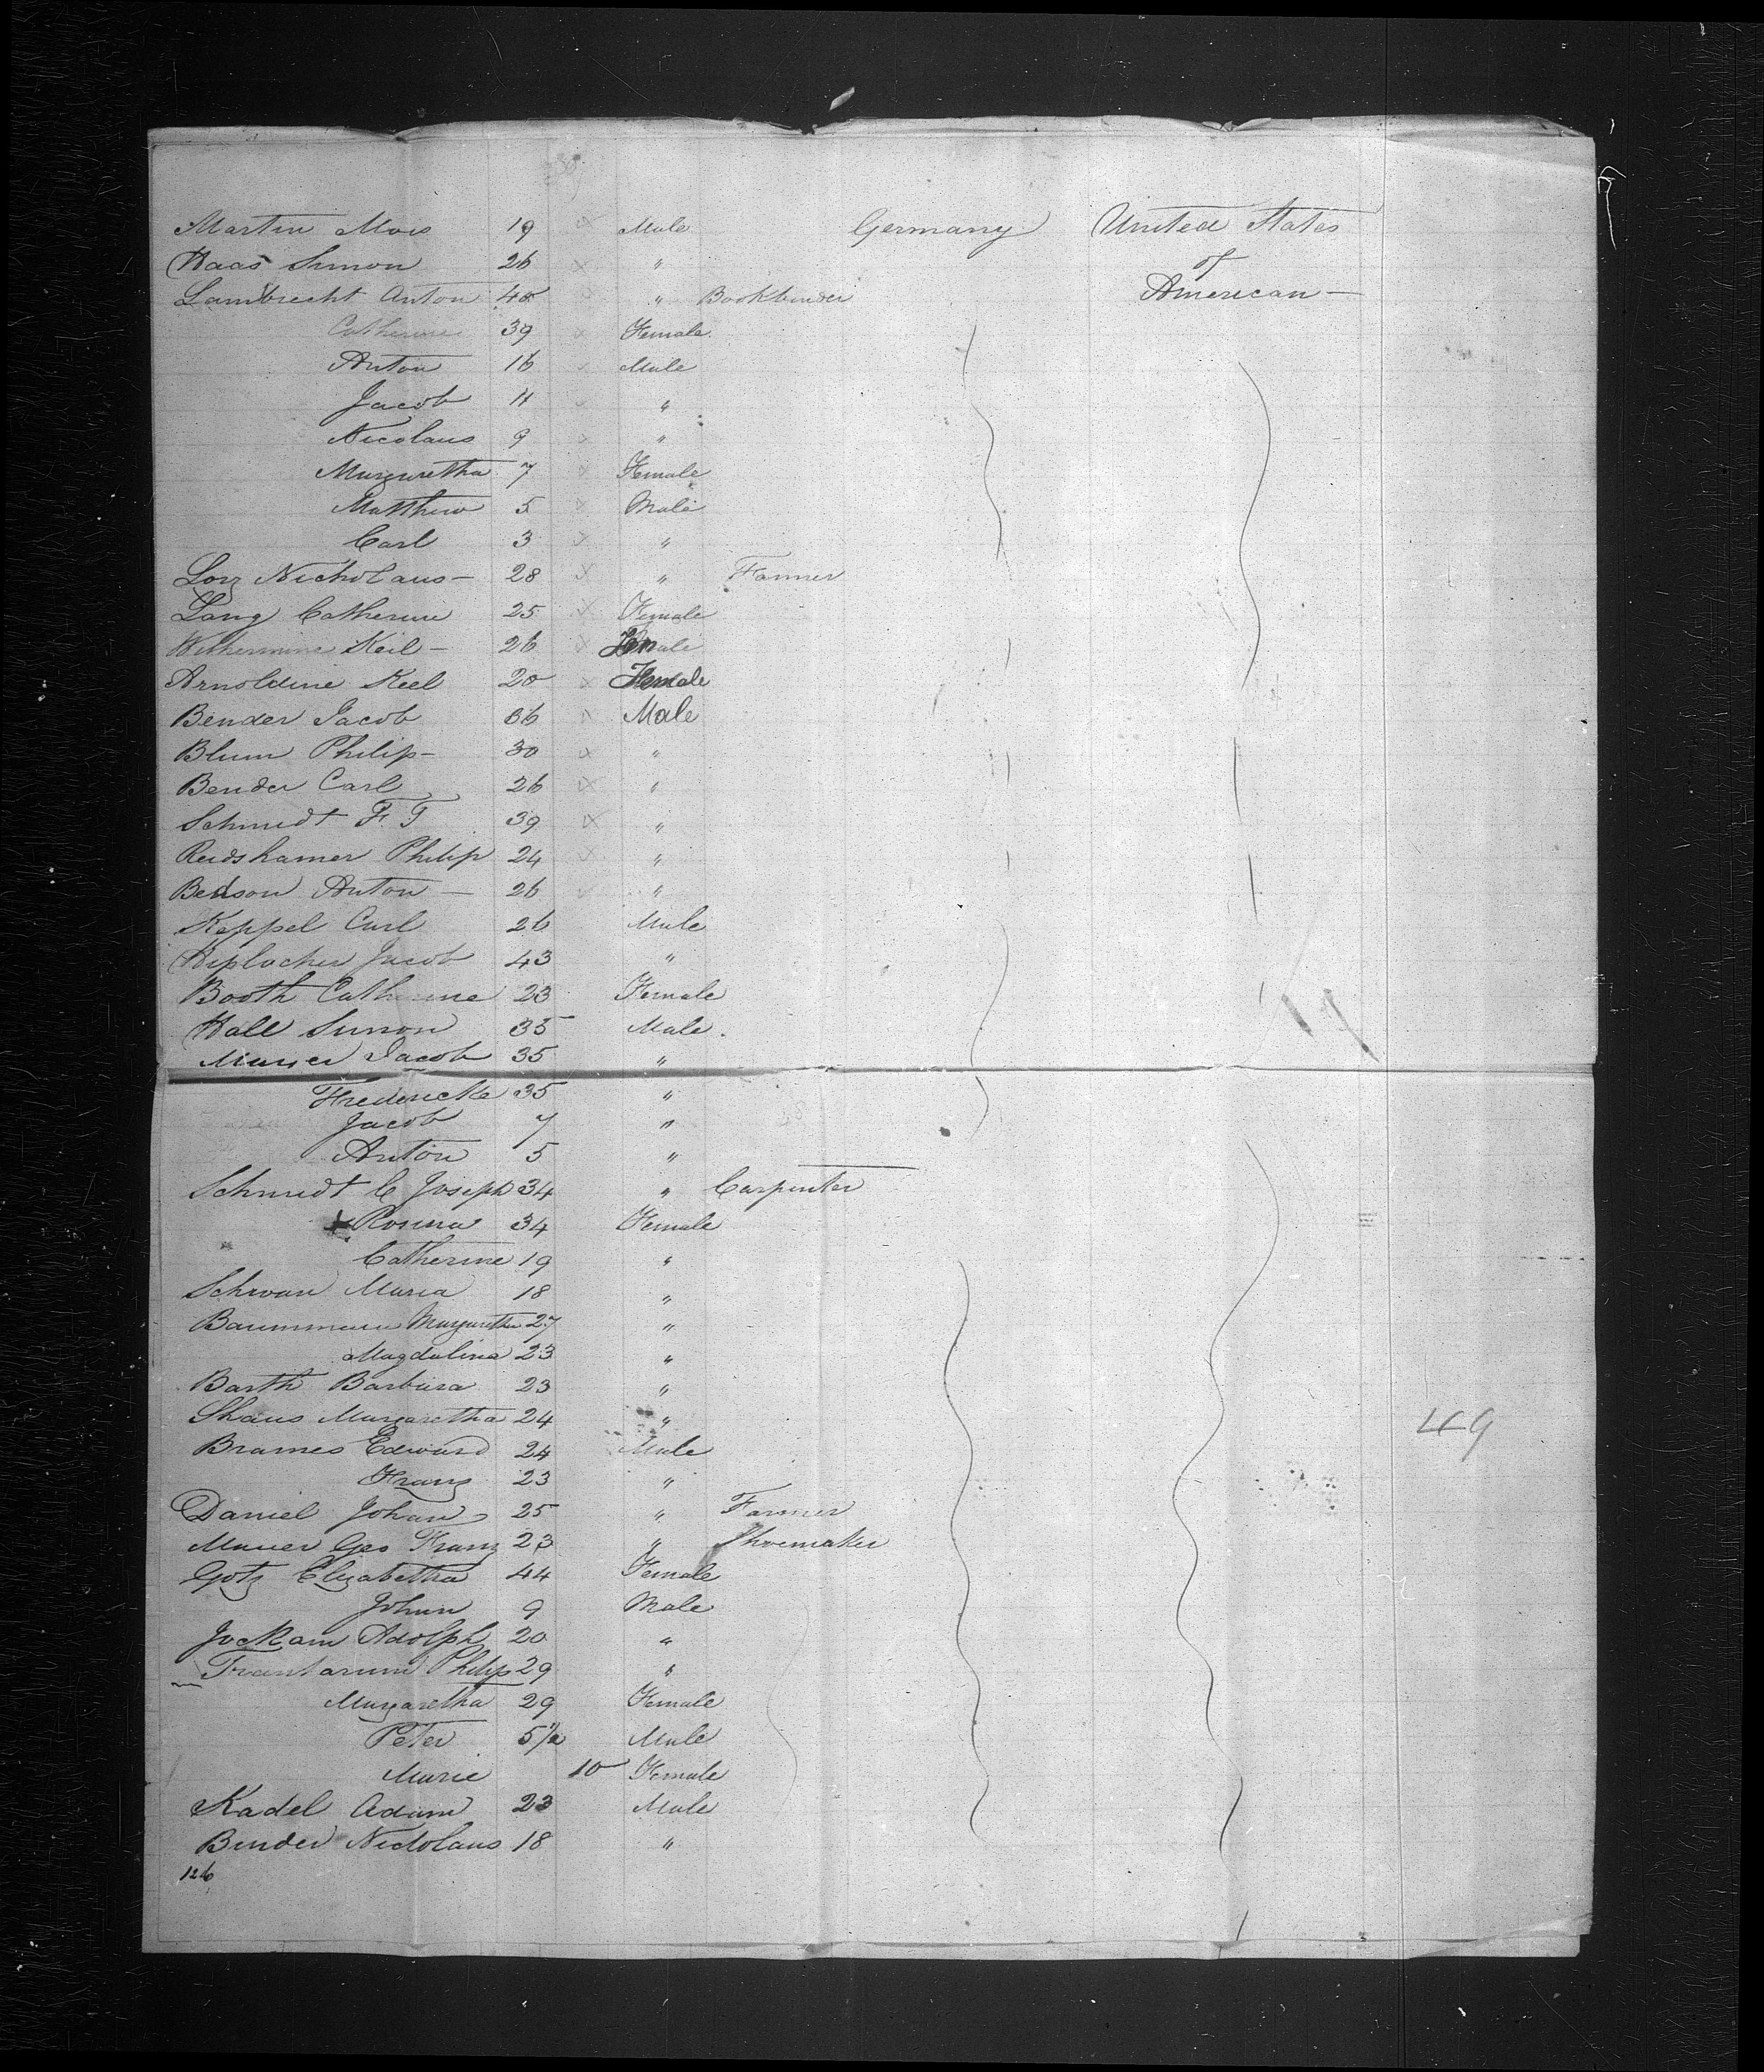 Martin Mois 19 Male Germany United States
Haas Simon 26 " of
Lambrecht Anton 45 " Bookbinder American —
Catherine 39 Female
Anton 16 Male
Jacob 11 "
Nicolaus 9 "
Margaretha 7 Female
Matthew 5 Male
Carl 3 "
Lorz Nicholaus — 28 " Farmer
Lang Catherine 25 Female
Wilhermine Keil — 26 Female
Arnoldine Keel 20 Female
Bender Jacob 36 Male
Blum Philip — 30 "
Bender Carl 26 "
Schmidt F. T 39 "
Reidshamer Philip 24 "
Benson Anton — 26 "
Keppel Carl 26 Male
Hiplocher Jacob 43 "
Booth Catherine 23 Female
Hall Simon 35 Male
Jacob 35 "
Fredericke 35 "
Jacob 7 "
Anton 5 "
Schmidt C Joseph 34 " Carpenter
Rosina 34 Female
Catherine 19 "
Schwan Maria 18 "
Baummann Margaretha 27 "
Magdalina 23 "
Barth Barbara 23 "
Shaus Margaretha 24 "
49
Brames Edward 24 Male
Franz 23 "
Daniel Johan 25 " Farmer
Maner Geo Franz 23 " Shoemaker
Gotz Elizabetha 44 Female
Johan 9 Male
Jockam Adolph 20 "
Trantarum Philip 29 "
Margaretha 29 Female
Peter 5 1/2 Male
Marie 10 Female
Kadel Adam 23 Male
Bender Nicholaus 18 "
126